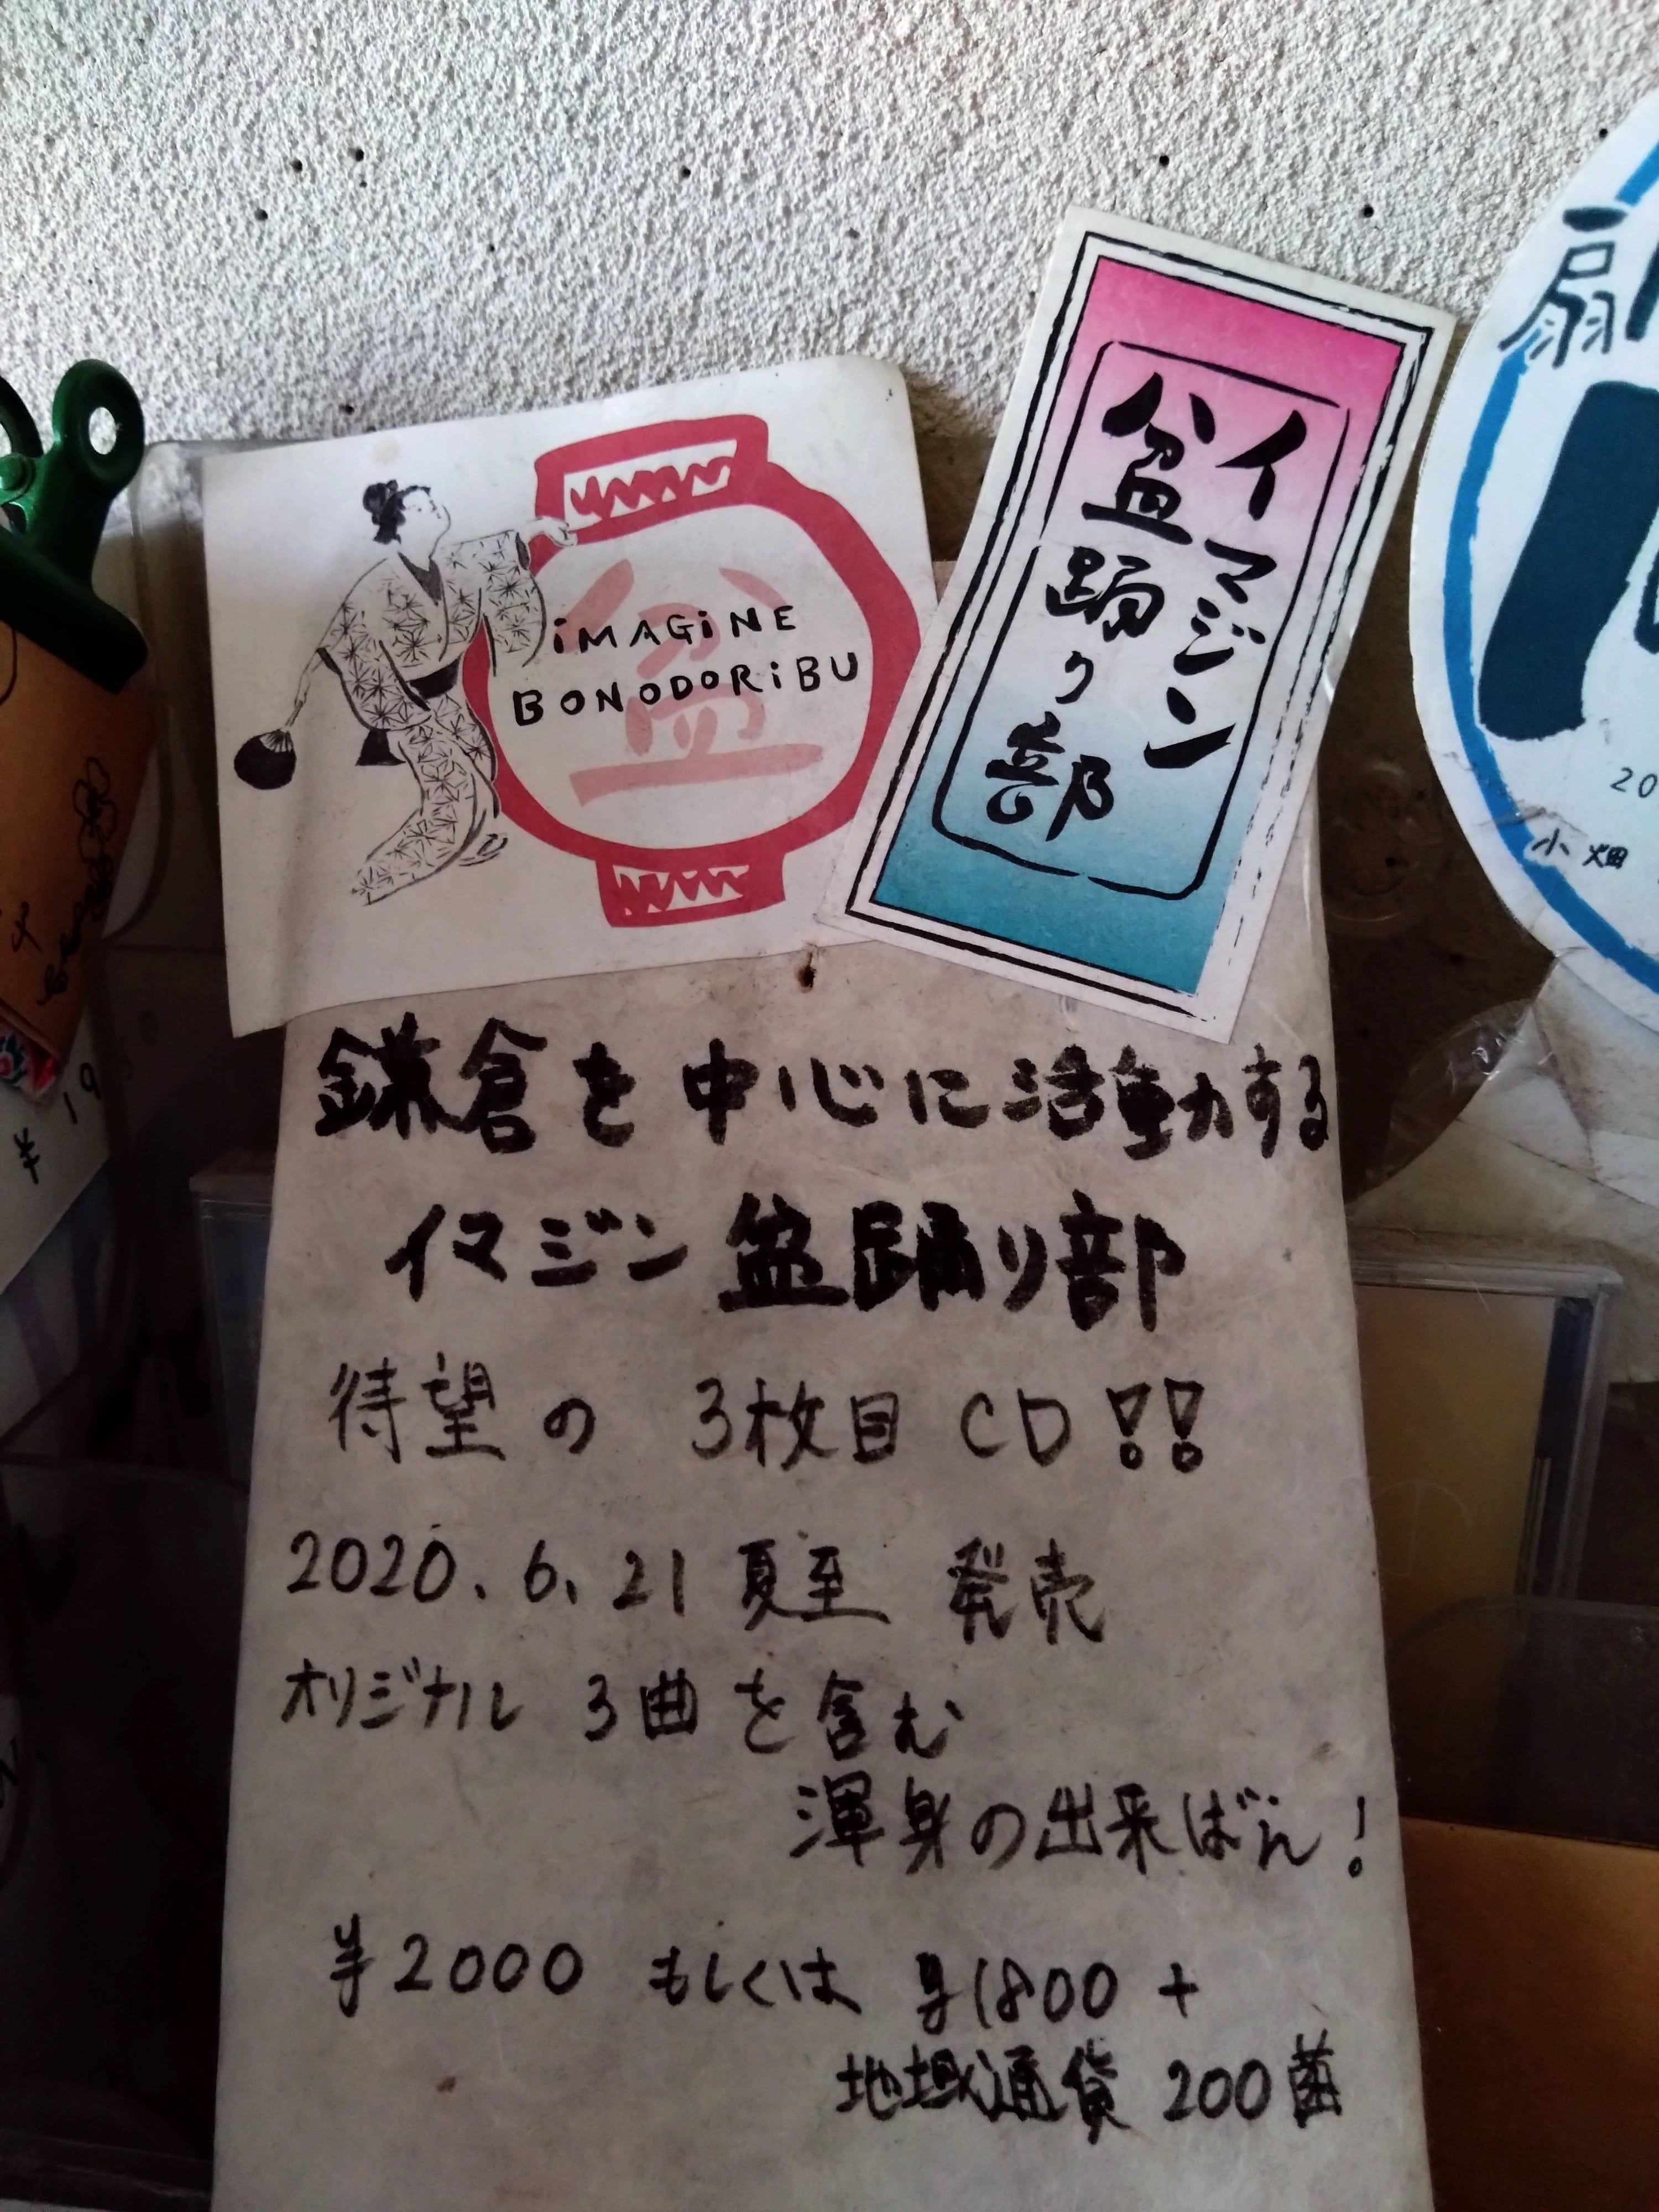 盆
iMAGiNE
BONODORiBU
イマジン
盆踊り部
鎌倉を中心に活動する
イマジン盆踊り部
待望の 3枚目 CD!!
2020.6.21 夏至 発売
オリジナル 3曲を含む
渾身の出来ばえ!
¥2000 もしくは ¥1800+
地域通貨 200菌
扇
20
小畑
¥19